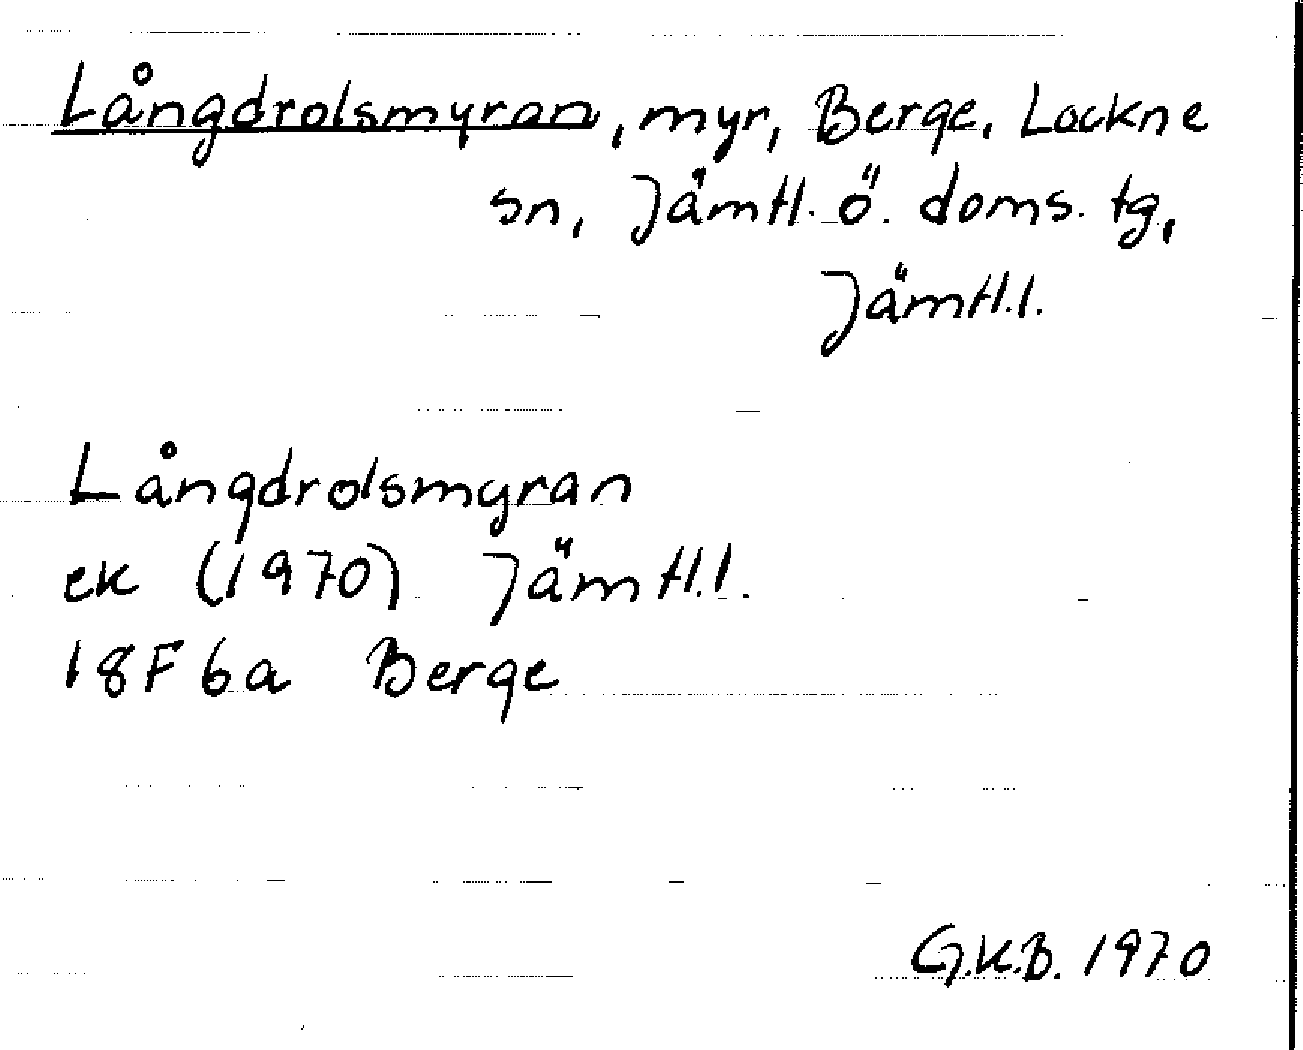 Långdrolsmyran, myr, Berge, Lockne
sn, Jämtl. ö. doms. tg,
Jämtl.l.
Långdrolsmyran
ek (1970) Jämtl.l.
18F6a Berge
G.K.B. 1970